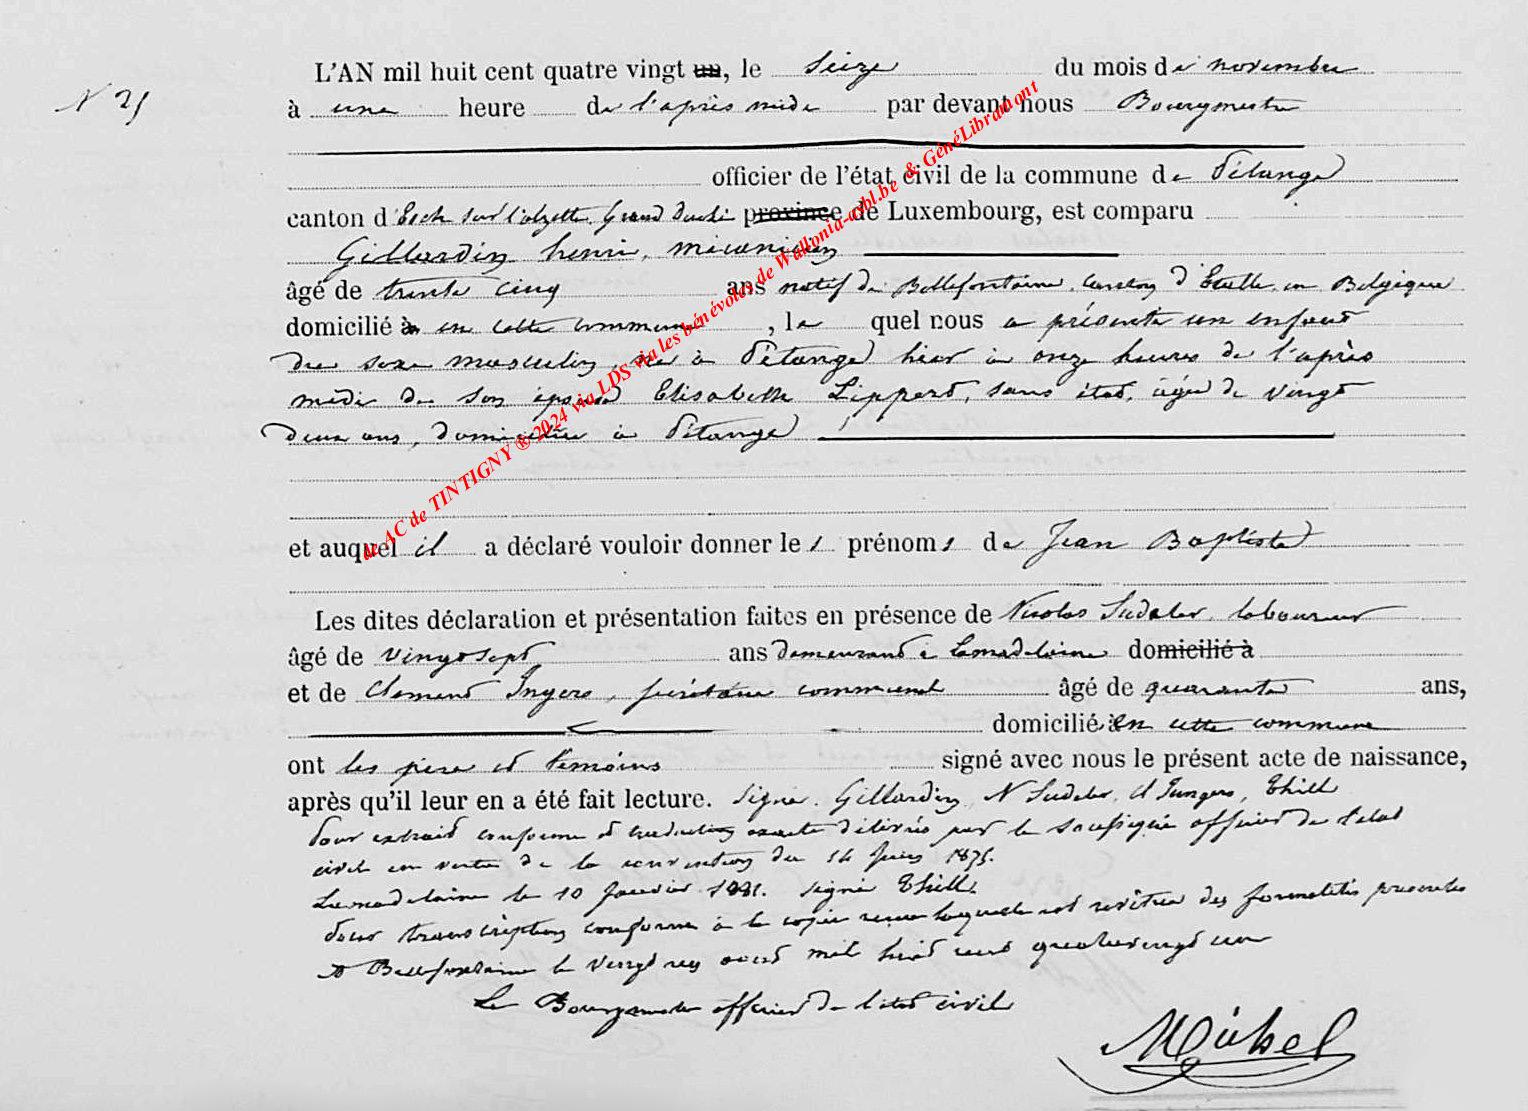 N 25
L'AN mil huit cent quatre vingt un, le seize du mois de novembre
à une heure de l'après midi par devant nous Bourgmestre
officier de l'état civil de la commune de Pétange
canton d'Esch sur l'alzette Grand duché province de Luxembourg, est comparu
Gillardin henri, mécanicien
âgé de trente cinq ans natif de Bellefontaine canton d'Etalle en Belgique
domicilié à en cette commune, le quel nous a présenté un enfant
du sexe masculin, né à Pétange hier à onze heures de l'après
midi de son épouse Elisabeth Lippert, sans état, âgée de vingt
deux ans, domiciliée à Pétange
et auquel il a déclaré vouloir donner les prénoms de Jean Baptiste
Les dites déclaration et présentation faites en présence de Nicolas Sudeler laboureur
âgé de vingt sept ans demeurant à Lamadelaine domicilié à
et de Clement Jngers, secrétaire communal âgé de quarante ans,
domicilié à en cette commune
ont les père et témoins signé avec nous le présent acte de naissance,
après qu'il leur en a été fait lecture. signé. Gillardin, N Sudeler, Cl Jungers, Thill
Pour extrait conforme et traduction exacte délivrés par le soussigné officier de l'état
civil en vertu de la convention du 14 Juin 1875.
Lamadelaine le 10 Janvier 1881. signé Thill.
Pour transcription conforme à la copie reçue laquelle est revêtue des formalités prescrites
A Bellefontaine le vingt août mil huit cent quatrevingt un
Le Bourgmestre officier de l'état civil
Michel
de AC de TINTIGNY ® 2024 via LDS via les bénévoles de Wallonia-asbl.be & GénéLibramont